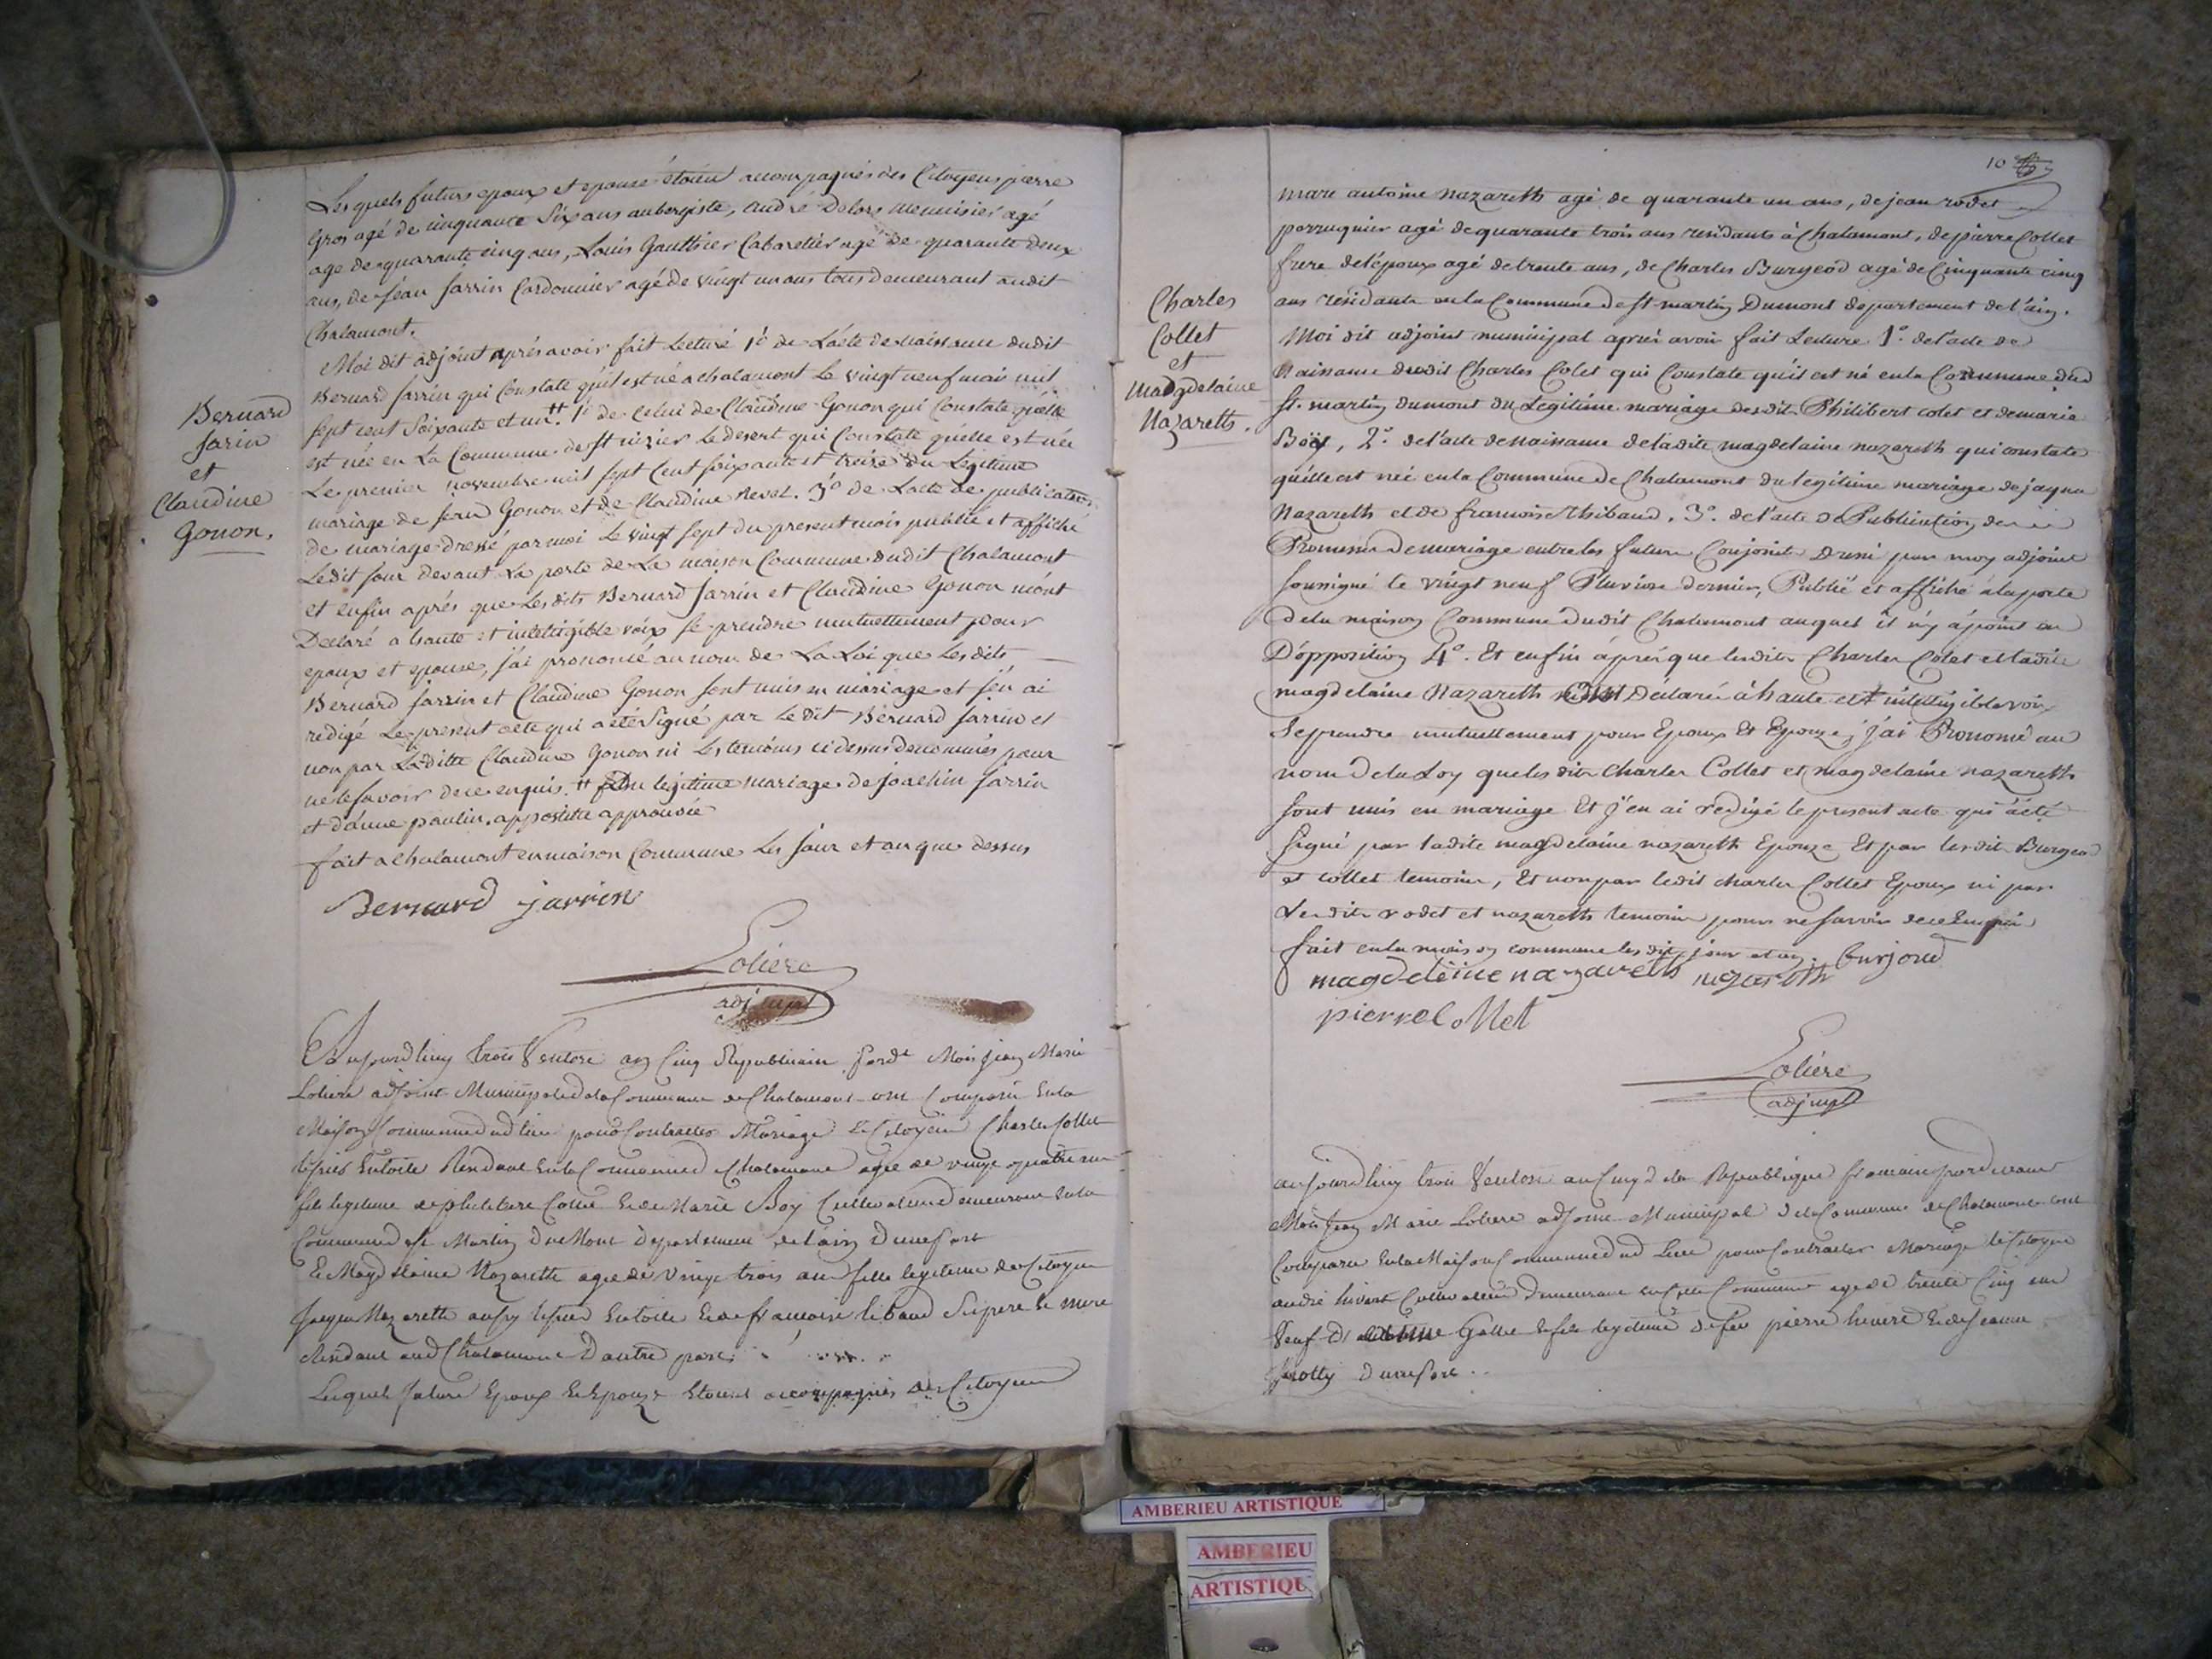 Les quels futurs epoux et epouse étoient accompagnés des Citoyens pierre
Gros agé de cinquante Six ans aubergiste, andré Delors menuisier agé
age de quarante cinq ans, Louis Gauthier Cabaretier agé de quarante deux
ans, de Jean Jarrin Cordonnier agé de vingt un ans tous demeurant audit
Chalamont.
Moi dit adjoint après avoir fait lecture 1º de L'acte de naissance dudit
Bernard Jarrin qui Constate qu'il est né a chalamont le vingt neuf mai mil
sept cent Soixante et un # 1º de Celui de Claudine Gonon qui Constate qu'elle
est née en La Commune de St nizier le desert qui Constate qu'elle est née
Le premier novembre mil sept Cent soixante et treize du Legitime
mariage de jean Gonon et de Claudine Revel. 3º de L'acte de publication
de mariage dressé par moi Le vingt sept du present mois publié et affiché
Ledit jour devant La porte de La maison Commune dudit Chalamont
et enfin aprés que Les dits Bernard Jarrin et Claudine Gonon m'ont
Declaré a haute et intelligible voix se prendre mutuellement pour
epoux et epouse, j'ai prononcé au nom de La Loi que Les dits
Bernard Jarrin et Claudine Gonon sont unis en mariage et j'en ai
redigé Le present acte qui a été Signé par Le dit Bernard Jarrin et
non par Laditte Claudine Gonon ni Les temoins ci dessus denommés pour
ne le savoir de ce enquis. # Du legitime mariage de joachim Jarrin
et d'anne paulin. appostille approuvée
fait a chalamont en maison Commune Les jour et an que dessus
Bernard
Jarin
et
Claudine
Gonon.
Bernard jarrin
Loliere
adj mpl
Aujourdhuy trois Ventose an Cinq Republicain pardt Moi jean Marie
Loliere adjoint Municipal de la Commune de Chalamont ont Comparu En la
Maison Commune dud lieu pour Contracter Mariage Le Citoyen Charles Collet
tissier En toile Residant En la Commune de Chalamont agé de vingt quatre ans
fils legitime de philibere Collet Et de Marie Boy Cultivateur demeurant En la
Commune de St Martin du Mont departement de lain d'une part
Et Magdelaine Nazareth agee de vingt trois ans fille legitime de Citoyen
Jaque Nazareth aussy tissier En toile Et de francoise tibaud Ses pere Et mere
Residant aud Chalamont d'autre part
Lesquels futurs Epoux Et Epouze Etoient accompagnés des Citoyens
10
marc antoine nazareth agé de quarante un ans, de jean rodet
perruquier agé de quarante trois ans residants à Chalamont, de pierre Collet
frere de l'époux agé de trente ans, de Charles Burgeod agé de Cinquante cinq
ans residants en la Commune de St martin Dumont departement de l'ain.
Moi dit adjoint municipal après avoir fait Lecture 1º. de l'acte de
Naissance dudit Charles Colet qui Constate qu'il est né en la Commune de
St. martin dumont du Legitime mariage desdits Philibert colet et de marie
Böy, 2º. de l'acte de naissance de ladite magdelaine nazareth qui constate
qu'elle est née en la Commune de Chalamont du legitime mariage de jaque
Nazareth et de francoise thibaud. 3º. de l'acte de Publication de
Promesse de mariage entre les futurs Conjoints dressé par moy adjoint
soussigné le vingt neuf Pluviose dernier, Publié et affiché à la porte
de la maison Commune dudit Chalamont auquel il n'y à point eu
D'opposition 4º. Et enfin après que lesdits Charles Colet et ladite
magdelaine Nazareth Declaré à haute et intelligible voix
Se prendre mutuellement pour Epoux Et Epouze; j'ai Prononcé au
nom de la Loy que les dits Charles Collet et magdelaine nazareth
sont unis en mariage Et j'en ai redigé le present acte qui a été
signé par ladite magdelaine nazareth Epouze Et par lesdits Burgeod
et collet temoins, Et non par ledit charles Collet Epoux ni par
Lesdits rodet et nazareth temoins pour ne savoir de ce Enquis
fait en la maison commune les dits jour et an. burjoud
Charles
Collet
et
Madgdelaine
Nazareth.
magdeleine nazareth nazareth
pierre collet
Loliere
adj mpl
aujourdhuy trois Ventose an Cinq de la Republique francaise pardevant
Moi Jean Marie Loliere adjoint Municipal de la Commune de Chalamont ont
Comparu En la Maison Commune dud Lieu pour Contracter Mariage le Citoyen
andré hivert Cultivateur Demeurant en Cette Commune agé de trente Cinq ans
Veuf de Gallet Et fils legitime de feu pierre hivert Et de Jeanne
d'une part..
AMBERIEU ARTISTIQUE
AMBERIEU
ARTISTIQU